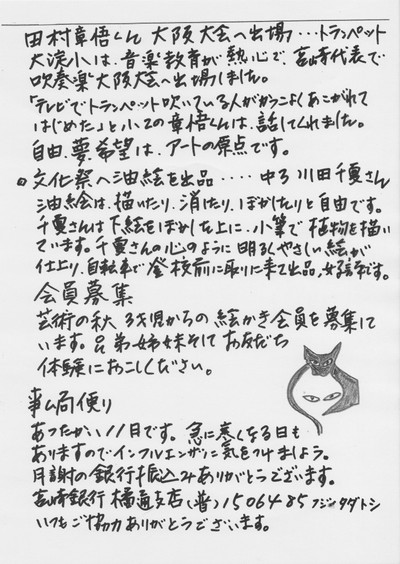 田村章悟くん 大阪大会へ出場・・・トランペット
大淀小は、音楽教育が熱心で、宮崎代表で
吹奏楽大阪大会へ出場しました。
「テレビでトランペット吹いている人がかっこよくあこがれて
はじめた」と小2の章悟くんは、話してくれました。
自由、夢、希望は、アートの原点です。
文化祭へ油絵を出品・・・・・中3 川田千夏さん
油絵は、描いたり、消したり、ぼかしたりと自由です。
千夏さんは下絵をぼかした上に、小筆で植物を描い
ています。千夏さんの心のように明るくやさしい絵が
仕上り、自転車で登校前に取りに来て出品、です。
会員募集
芸術の秋 3才児からの絵かき会員を募集して
います。兄弟姉妹そしてお友だち
体験におこしください。
事ム局便り
あったかい11月です。急に寒くなる日も
ありますのでインフルエンザに気をつけましょう。
月謝の銀行振込みありがとうございます。
宮崎銀行 橘通支店(普)1506485 フジタダトシ
いつもご協力ありがとうございます。